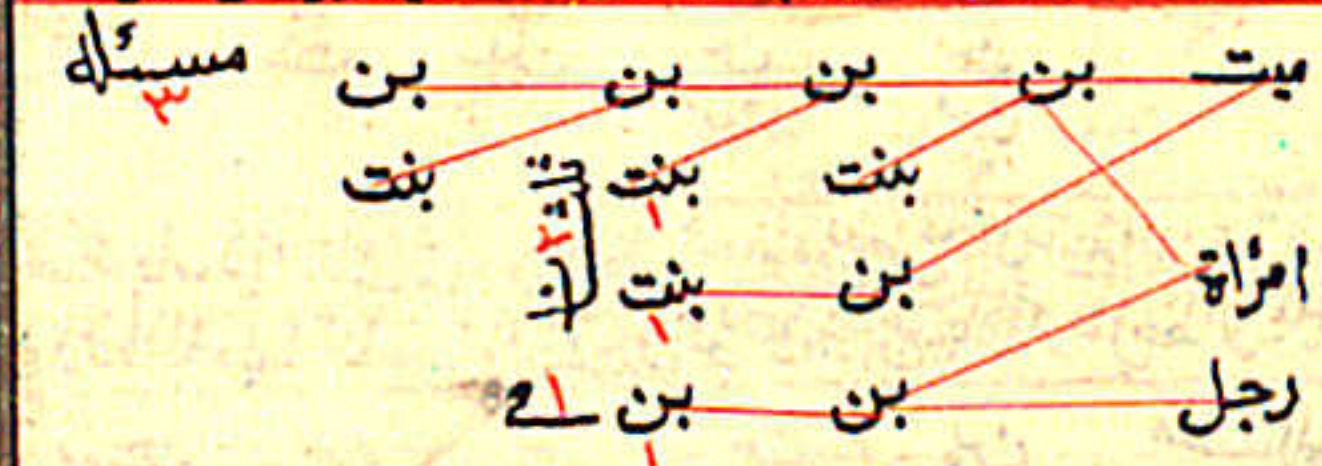 ميت بن بن بن بن مسئله ٣
بنت بنت ١ بنت
امرأة بن بنت ١
رجل بن بن ١